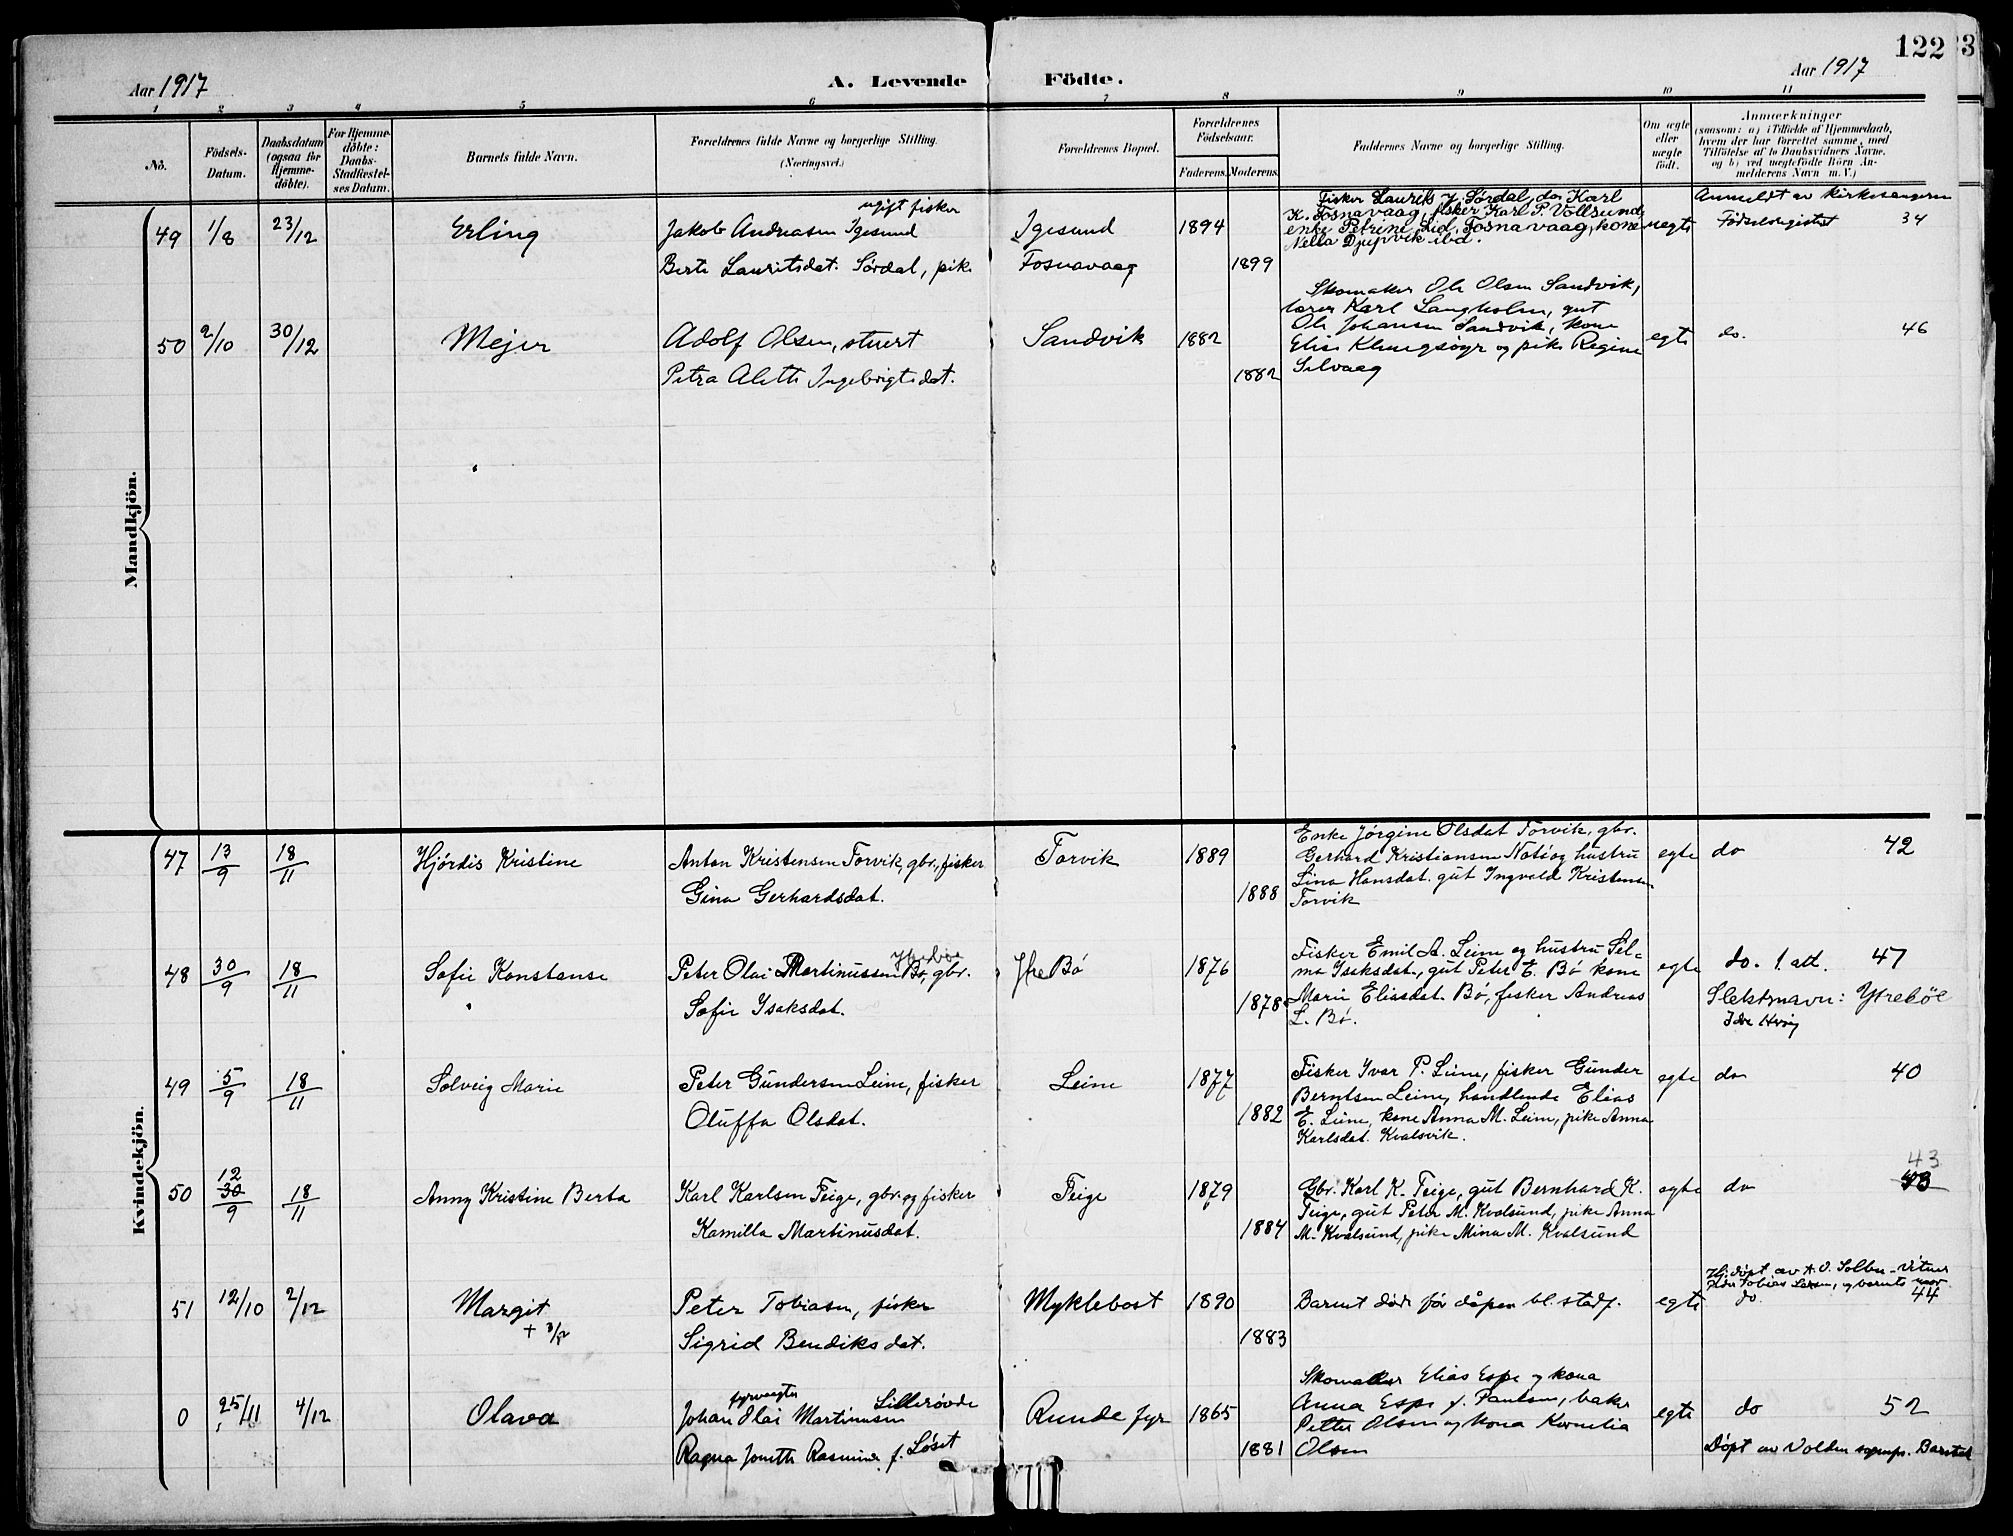 122
Aar 1917
A. Levende Födte.
Aar 1917
1 2 3 4 5 6 7 8 9 10 11
No.
Födsels-Datum.
Daabsdatum (ogsaa for Hjemmedöbte).
For Hjemmedöbte: Daabs-Stadfæstelses Datum.
Barnets fulde Navn.
Forældrenes fulde Navne og borgerlige Stilling. (Næringsvei.)
Forældrenes Bopæl.
Forældrenes Födselsaar.
Faderens. Moderens.
Faddernes Navne og borgerlige Stilling.
Om ægte eller uægte født.
Anmærkninger
(saasom: a) i Tilfælde af Hjemmedaab,
hvem der har forrettet samme, med
Tilföielse af to Daabsvidners Navne.
og b) ved uegtefödte Börn An-
melderens Navn m. V.)
Mandkjön.
49 1/8 23/12 Erling
ugift fisker
Jakob Andreasen Igesund
Berte Lauritsdat. Sørdal, pike
Igesund
Fosnavaag
1894
1899
Fisker Laurits J. Sørdal, do. Karl
K. Fosnavaag, fisker Karl P. Vollsund,
enke Petrine Lid, Fosnavaag, kone
Nella Djupvik ibd.
uegte
Anmeldt av kirkesangeren
Fødselsregistret 34
50 2/10 30/12 Mejer
Adolf Olsen, stuert
Petra Alette Ingebrigtsdat.
Sandvik
1882
1882
Skomaker Ole Olsen Sandvik,
lærer Karl Langholm, gut
Ole Johansen Sandvik, kone
Elise Klungsøyr og pike Regine
Selvaag
egte do. 46
Kvindekjön.
47 13/9 18/11 Hjördis Kristine
Anton Kristensen Torvik, gbr., fisker
Gina Gerhardsdat.
Torvik
1889
1888
Enke Jørgine Olsdat Torvik, gbr.
Gerhard Kristiansen Notø og hustru
Lina Hansdat. gut Ingvald Kristensen
Torvik
egte do 42
48 30/9 18/11 Sofie Konstanse
Peter Olai Martinussen Bø, gbr.
Sofie Isaksdat.
Ytre Bø
1876
1878
Fisker Emil A. Leine og hustru Sel-
ma Isaksdat, gut Peter E. Bø kone
Marie Eliasdat Bø, fisker Andreas
L. Bø.
egte do. 1. att. 47
Slektsnavn: Ytrebøe
49 5/9 18/11 Solveig Marie
Peter Gundersen Leine, fisker
Oluffa Olsdat.
Leine
1877
1882
Fisker Ivar P. Leine, fisker Gunder
Berntsen Leine, handlende Elias
E. Leine, kone Anna M. Leine, pike Anna
Karlsdat. Kvalsvik.
egte do 40
50 12 30/9 18/11 Anny Kristine Berta
Karl Karlsen Teige, gbr. og fisker
Kamilla Martinusdat.
Teige
1879
1884
Gbr. Karl K. Teige, gut Bernhard K.
Teige, gut Peter M. Kvalsund, pike Anna
M. Kvalsund, pike Mina M. Kvalsund
egte do 43
51 12/10 2/12 Margit
Peter Tobiasen, fisker
Sigrid Bendiksdat.
Myklebost
1890
1883
Barnet døde før dåpen bl. stadf.
egte
Hj. døpt av A. O. Solbu - Vitner
Peder Tobias Larsen, og barnets mor
do. 44
0 25/11 4/12 Olava
fyrvogter Lillerøvde
Johan Olai Martinusen
Ragna Jonette Rasmine f. Løset
Runde fyr
1865
1881
Skomaker Elias Espe og kona
Anna Espe f. Paulsen, baker
Petter Olsen og kona Kornelia
Olsen
egte do 52
Døpt av Volden sognepr. Barstad